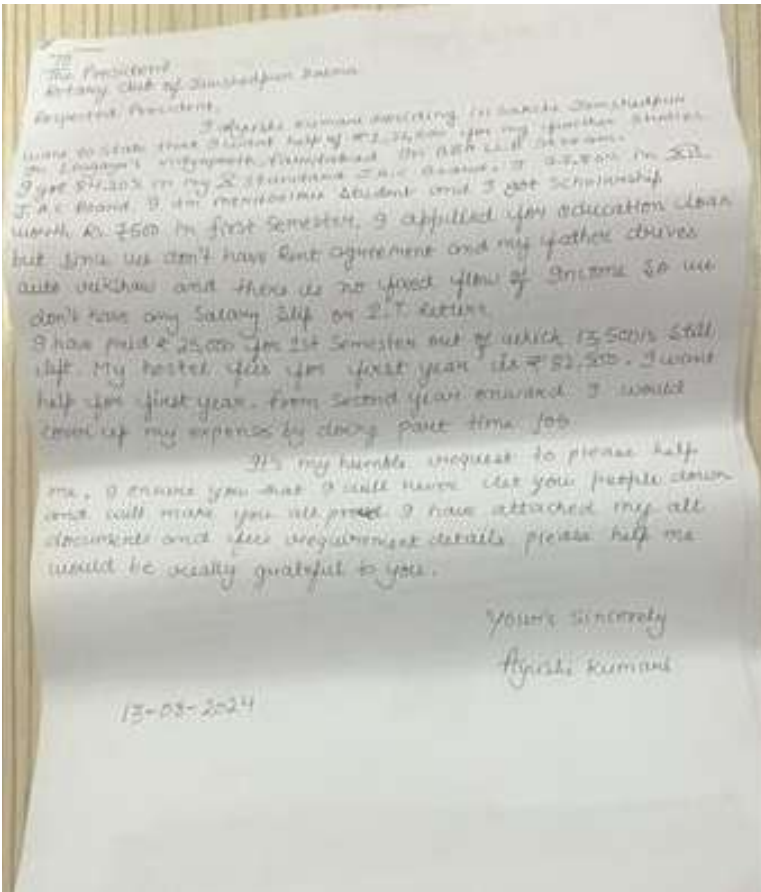 To
The President
Rotary Club of Jamshedpur Dalma
Respected President,
I Ayushi Kumari residing in Sakchi Jamshedpur
want to state that I want help of for my further studies
in Lingaya's Vidyapeeth, Faridabad in
I got in my X standard J.A.C Board, I in XII
J.A.C Board. I am meritorious student and I got scholarship
worth Rs. 7500 in first semester. I applied for education loan
but since we don't have Rent agreement and my father drives
auto rickshaw and there is no fixed flow of Income so we
don't have any Salary Slip or I.T. Return.
I have paid ₹ 25,000 for 1st Semester out of which 13,500 is still
left. My hostel fees for first year is ₹ 82,500. I want
help for first year. From Second year onward I would
cover up my expense by doing part time job.
It's my humble request to please help
me. I ensure you that I will never let you people down
and will make you all proud. I have attached my all
documents and fees requirement details please help me
would be really grateful to you.
Your's Sincerely
Ayushi Kumari
13-08-2024